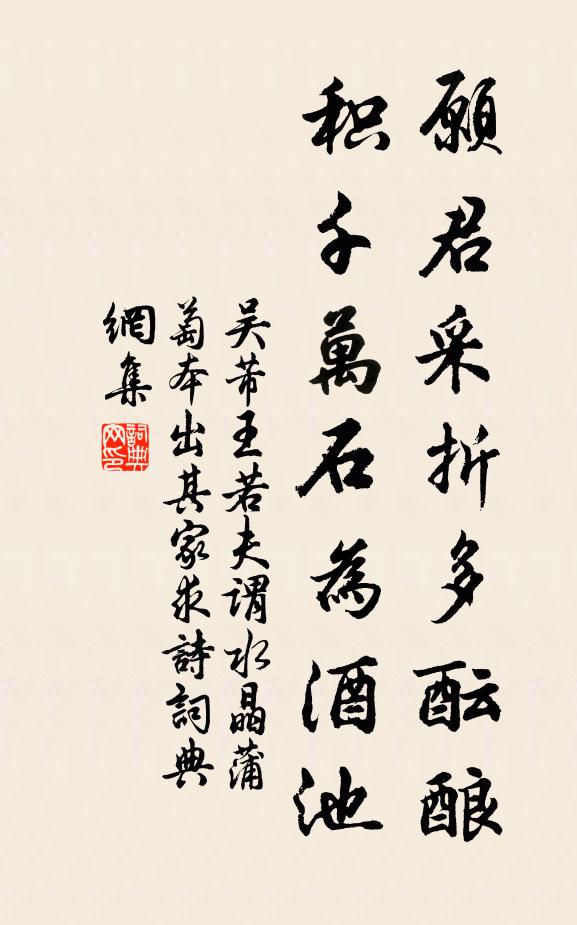 願君采折多酝酿
积千萬石為酒池
吴芾王若夫謂水晶蒲
萄本出其家求詩詞典
網集
詞典
网印